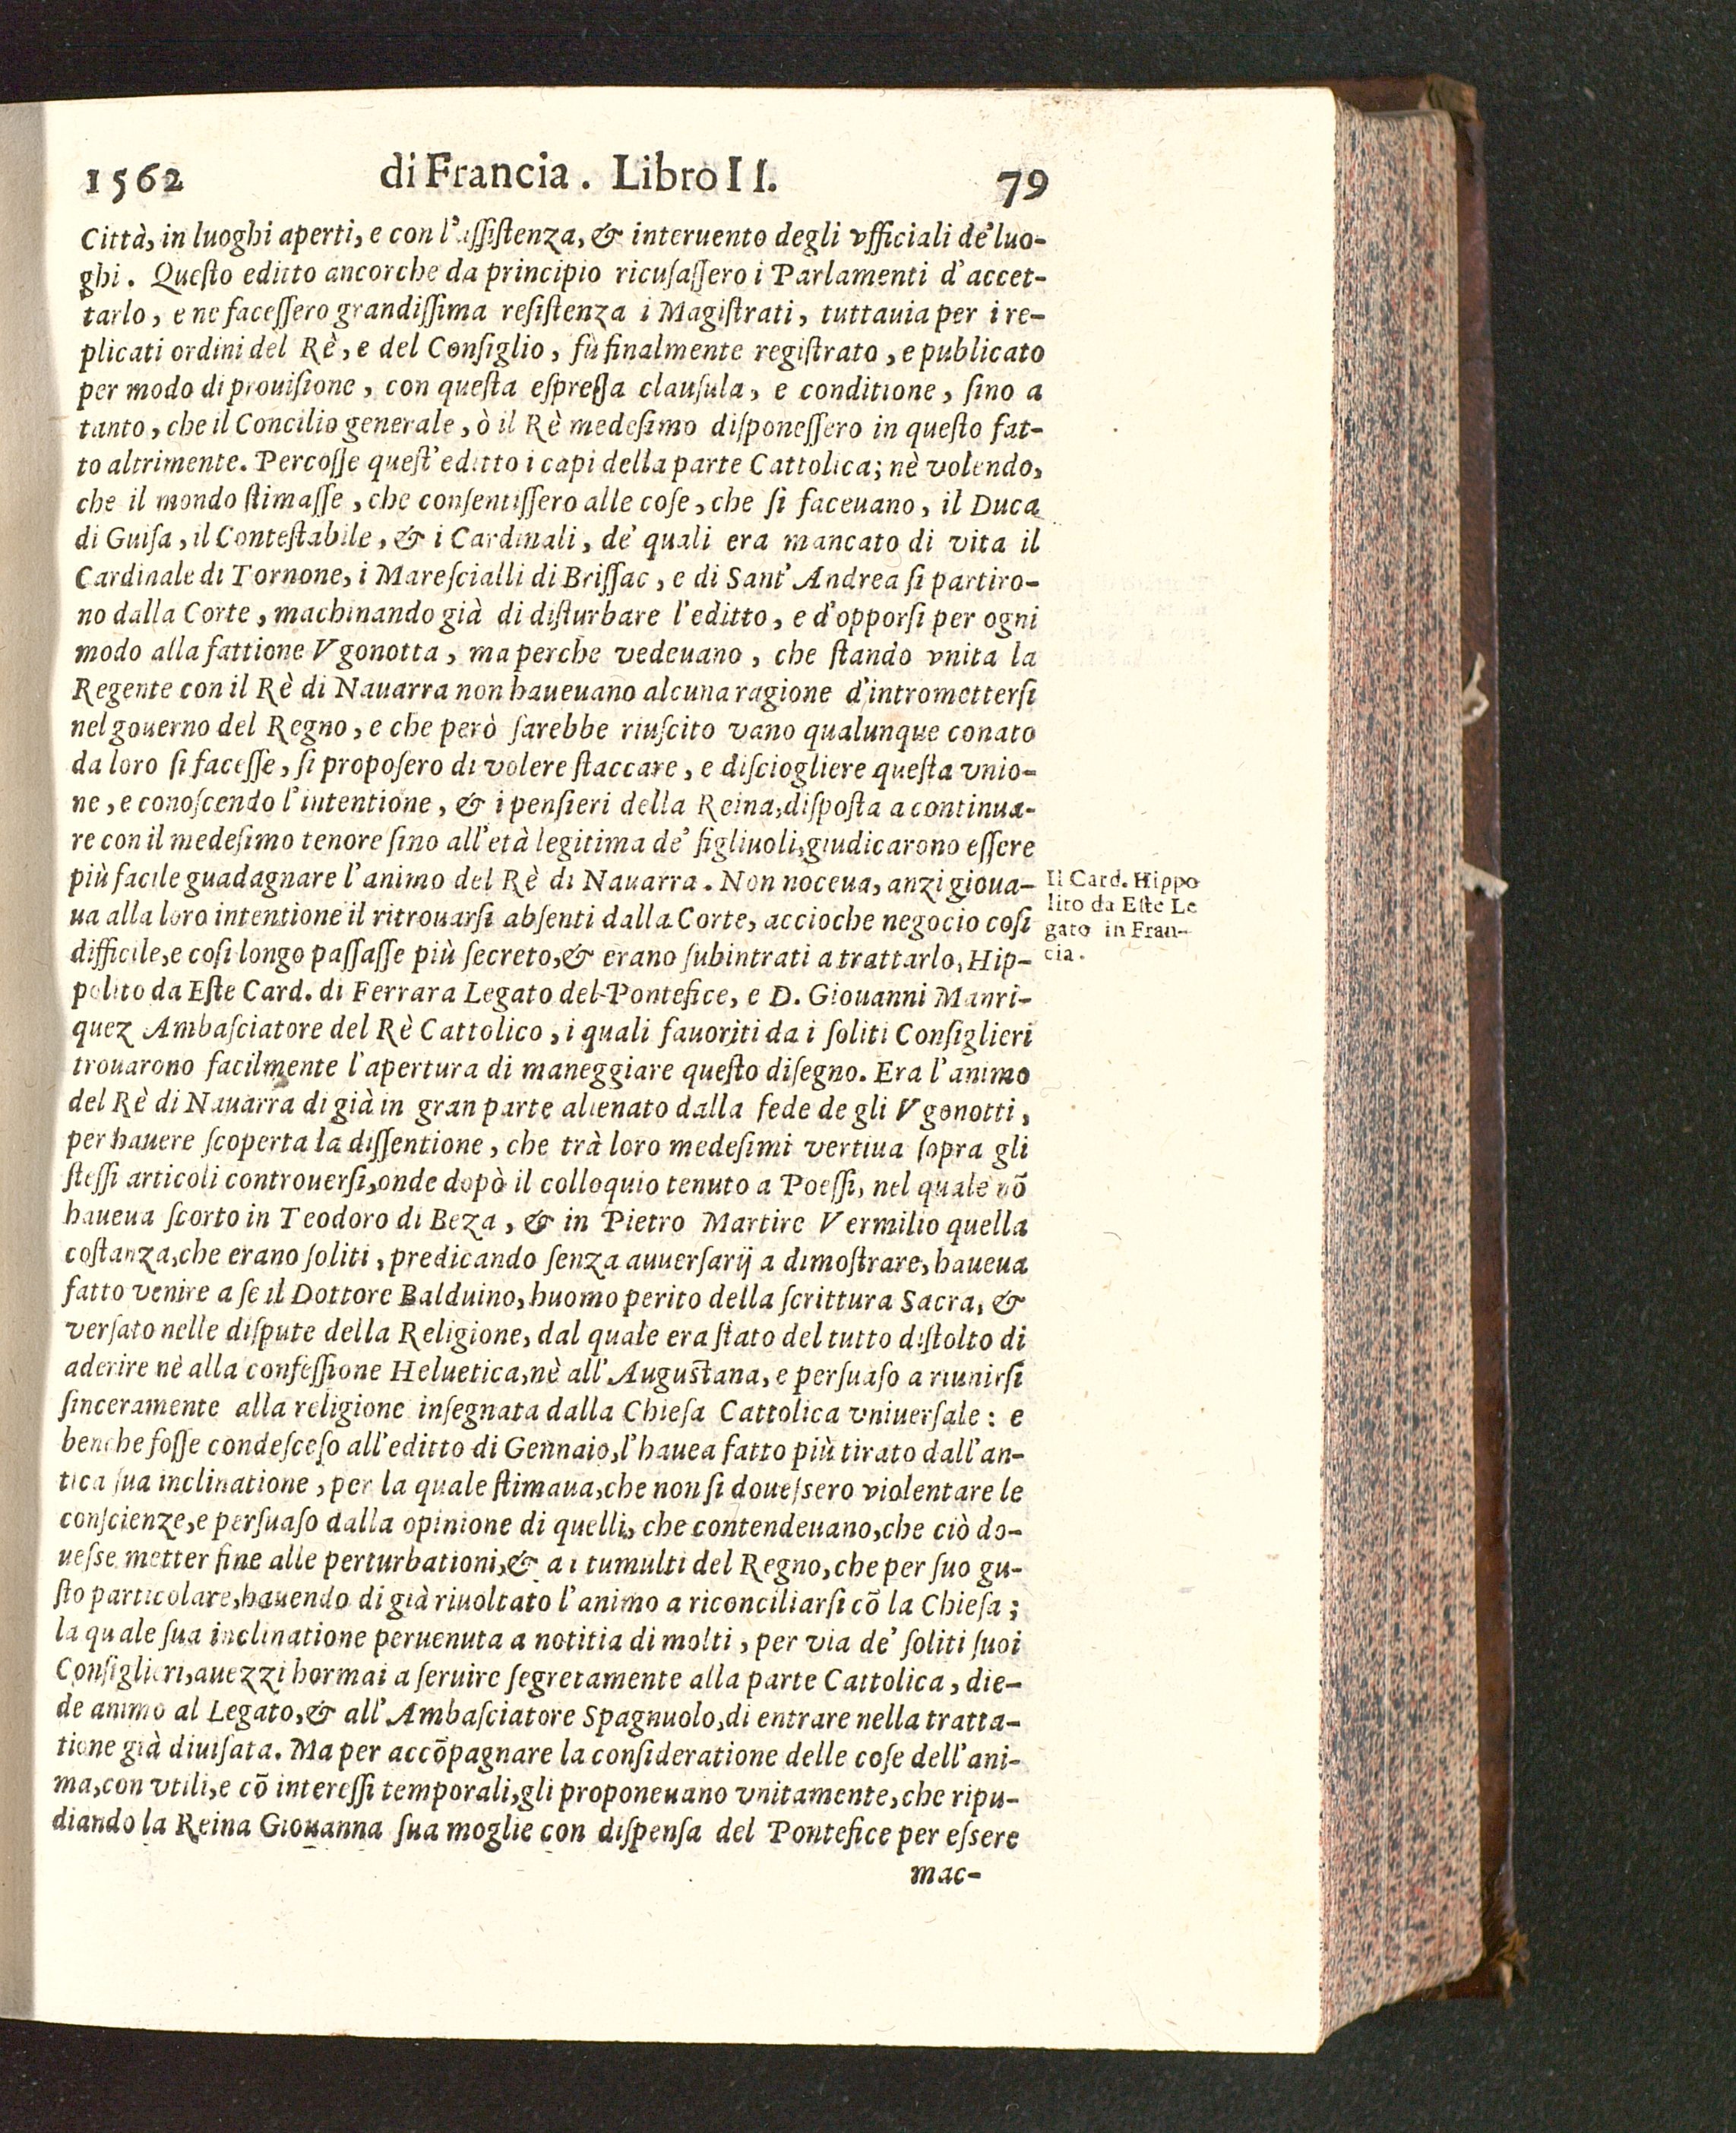 1562 di Francia. Libro II. 79
Città, in luoghi aperti, e con l'assistenza, & interuento degli vfficiali de' luo-
ghi. Questo editto ancorche da principio ricusassero i Parlamenti d'accet-
tarlo, e ne facessero grandissima resistenza i Magistrati, tuttauia per i re-
plicati ordini del Rè, e del Consiglio, fù finalmente registrato, e publicato
per modo di prouisione, con questa espressa clausula, e conditione, sino a
tanto, che il Concilio generale, ò il Rè medesimo disponessero in questo fat-
to altrimente. Percosse quest'editto i capi della parte Cattolica; nè volendo,
che il mondo stimasse, che consentissero alle cose, che si faceuano, il Duca
di Guisa, il Contestabile, & i Cardinali, de' quali era mancato di vita il
Cardinale di Tornone, i Marescialli di Brissac, e di Sant'Andrea si partiro-
no dalla Corte, machinando già di disturbare l'editto, e d'opporsi per ogni
modo alla fattione Vgonotta, ma perche vedeuano, che stando vnita la
Regente con il Rè di Nauarra non haueuano alcuna ragione d'intromettersi
nel gouerno del Regno, e che però sarebbe riuscito vano qualunque conato
da loro si facesse, si proposero di volere staccare, e disciogliere questa vnio-
ne, e conoscendo l'intentione, & i pensieri della Reina, disposta a continua-
re con il medesimo tenore sino all'età legitima de' figliuoli, giudicarono essere
più facile guadagnare l'animo del Rè di Nauarra. Non noceua, anzi gioua-
ua alla loro intentione il ritrouarsi absenti dalla Corte, accioche negocio cosi
difficile, e cosi longo passasse più secreto, & erano subintrati a trattarlo, Hip-
polito da Este Card. di Ferrara Legato del Pontefice, e D. Giouanni Manri-
quez Ambasciatore del Rè Cattolico, i quali fauoriti da i soliti Consiglieri
trouarono facilmente l'apertura di maneggiare questo disegno. Era l'animo
del Rè di Nauarra di già in gran parte alienato dalla fede de gli Vgonotti,
per hauere scoperta la dissentione, che trà loro medesimi vertiua sopra gli
stessi articoli controuersi, onde dopò il colloquio tenuto a Poessi, nel quale nõ
haueua scorto in Teodoro di Beza, & in Pietro Martire Vermilio quella
costanza, che erano soliti, predicando senza auuersarij a dimostrare, haueua
fatto venire a se il Dottore Balduino, huomo perito della scrittura Sacra, &
versato nelle dispute della Religione, dal quale era stato del tutto distolto di
aderire nè alla confessione Heluetica, nè all'Augustana, e persuaso a riunirsi
sinceramente alla religione insegnata dalla Chiesa Cattolica vniuersale: e
benche fosse condesceso all'editto di Gennaio, l'hauea fatto più tirato dall'an-
tica sua inclinatione, per la quale stimaua, che non si douessero violentare le
conscienze, e persuaso dalla opinione di quelli, che contendeuano, che ciò do-
uesse metter fine alle perturbationi, & a i tumulti del Regno, che per suo gu-
sto particolare, hauendo di già riuoltato l'animo a riconciliarsi cõ la Chiesa;
la quale sua inclinatione peruenuta a notitia di molti, per via de' soliti suoi
Consiglieri, auezzi hormai a seruire segretamente alla parte Cattolica, die-
de animo al Legato, & all'Ambasciatore Spagnuolo, di entrare nella tratta-
tione già diuisata. Ma per accõpagnare la consideratione delle cose dell'ani-
ma, con vtili, e cõ interessi temporali, gli proponeuano vnitamente, che ripu-
diando la Reina Giouanna sua moglie con dispensa del Pontefice per essere
mac-
Il Card. Hippo
lito da Este Le
gato in Fran-
cia.